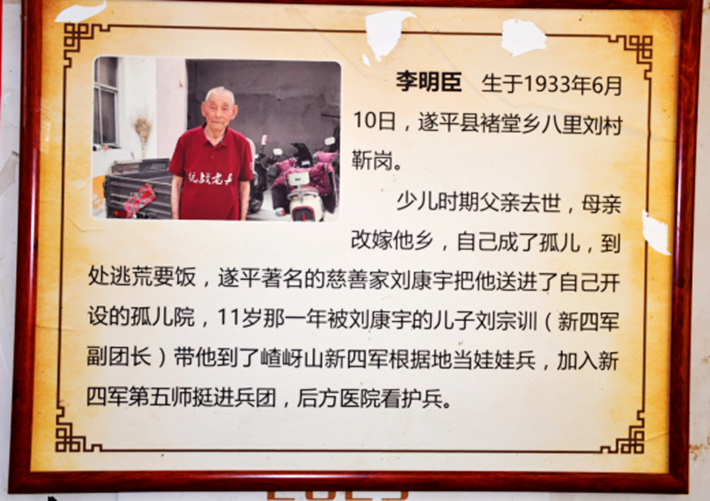 李明臣 生于1933年6月
10日，遂平县褚堂乡八里刘村
靳岗。
少儿时期父亲去世，母亲
改嫁他乡，自己成了孤儿，到
处逃荒要饭，遂平著名的慈善家刘康宇把他送进了自己开
设的孤儿院，11岁那一年被刘康宇的儿子刘宗训（新四军
副团长）带他到了嵖岈山新四军根据地当娃娃兵，加入新
四军第五师挺进兵团，后方医院看护兵。
抗战老兵